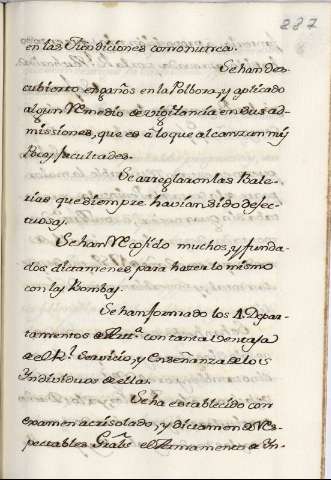 287
en las Fundiciones como nunca.
Se han des-
cubierto engaños en la Polbora, y aplicado
algun Remedio de vigilancia en sus ad-
missiones, que es â lo que alcanzan mis
facultades.
Se arreglaron las Bale-
rias que siempre havian sido defec-
tuosas.
Se han Recojido muchos, y funda-
dos dictamenes para hazer lo mismo
con las Bombas.
Se han formado los 4 Depar-
tamentos de Art.ª con tanta ventaja
de el R.l Servicio, y Enseñanza de los
Individuos de ella.
Se ha establecido con
examen acrisolado, y dictamen de Res-
pectables Grales el Armamento de In-